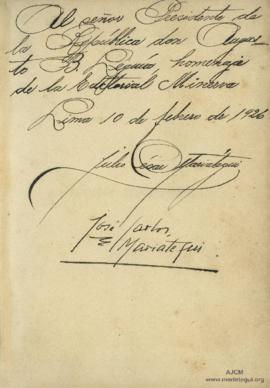 Al señor Presidente de
la República don Augus-
to B. Leguía homenaje
de la Editorial Minerva
Lima 10 de febrero de 1926
Julio César Mariátegui
José Carlos
Mariátegui
AJCM
www.mariategui.org